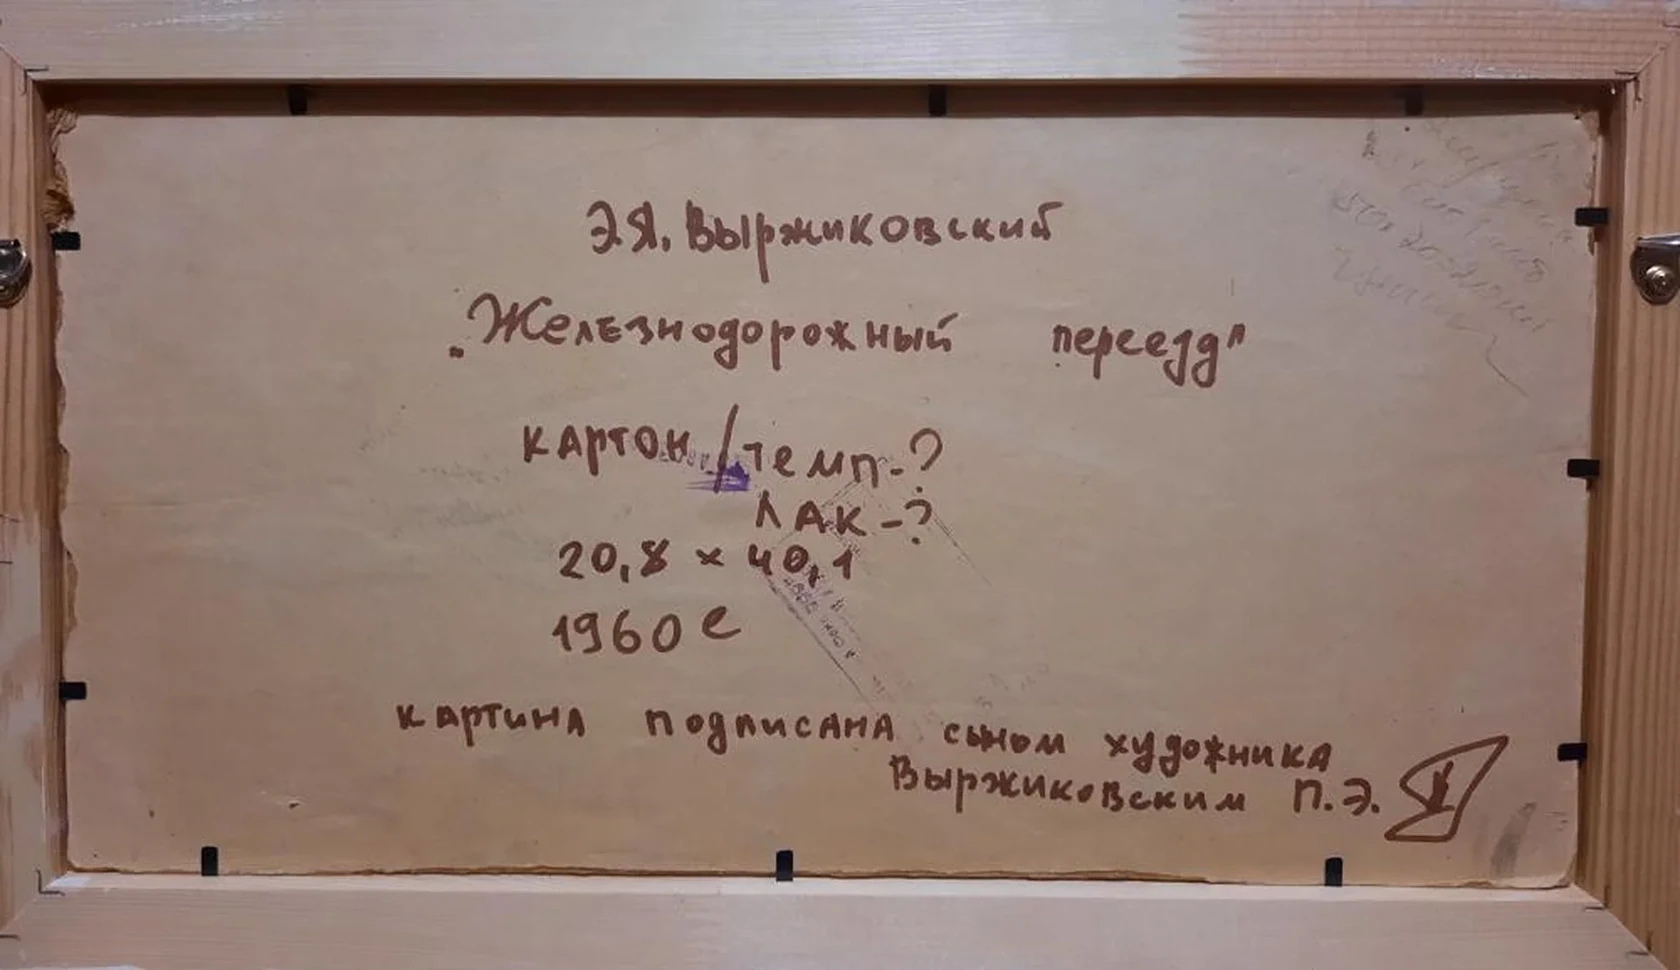 Э.Я. Выржиковский
„Железнодорожный переезд"
картон / темп-?
лак-?
20,8 × 40,1
1960 е
картина подписана сыном художника
Выржиковским П.Э.